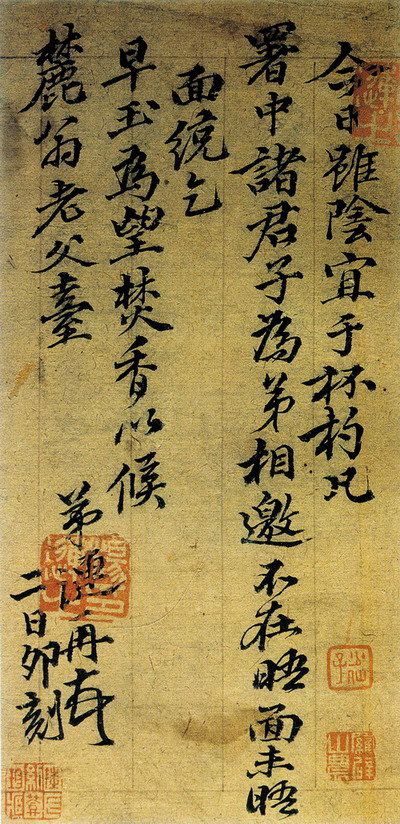 今日雖陰宜于杯杓凡
署中諸君子為弟相邀不在晤面未晤
面統乞
早玉為望焚香以候
麓翁老父臺
弟再
二日卯刻